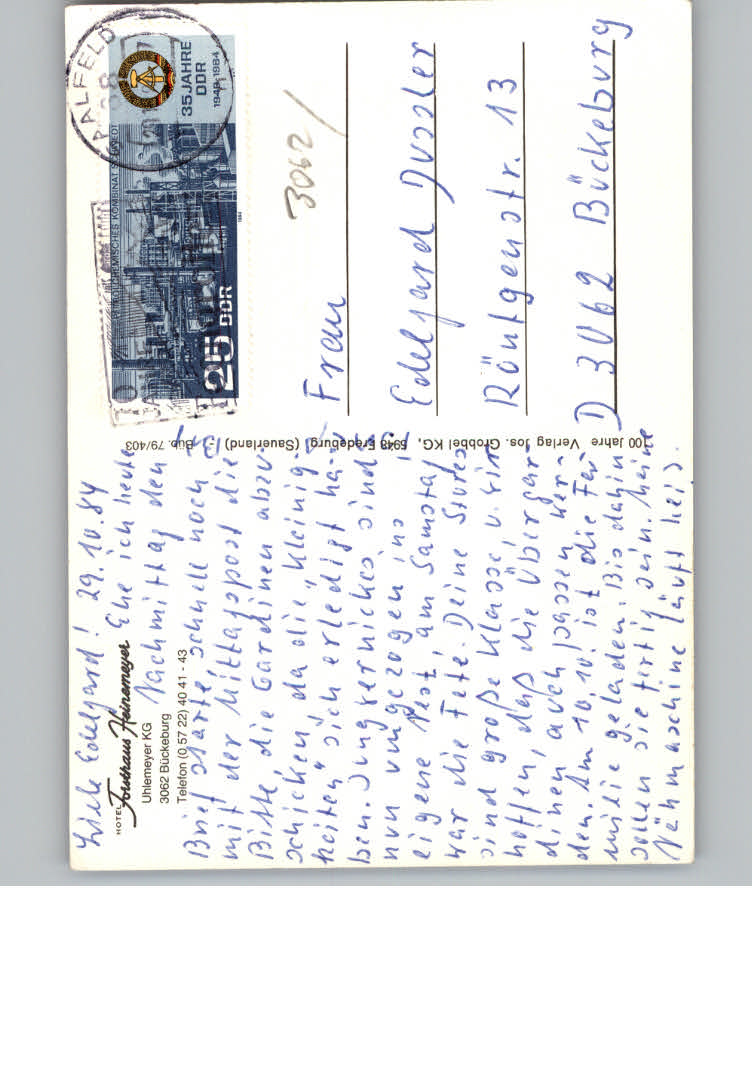 Liebe Edelgard! 29.10.84
HOTEL
Forsthaus Heinemeyer
Uhlemeyer KG
3062 Bückeburg
Telefon (0 57 22) 40 41 - 43
Ehe ich heute
Nachmittag den
Brief starte schnell noch
mit der Mittagspost die
Bitte, die Gardinen abzu-
schicken, da die „Kleinig-
keiten" sich erledigt ha-
ben. Jungvernickes sind
nun umgezogen ins
eigene Nest, am Samstag
war die Fete. Deine Stores
sind große Klasse u. wir
hoffen, daß die Übergar-
dinen auch passen wer-
den. Am 10.10. ist die Fa-
milie geladen. Bis dahin
sollen sie fertig sein. Meine
Nähmaschine läuft heis.
100 Jahre Verlag Jos. Grobbel KG, 5948 Fredeburg (Sauerland)
Büb. 79/403
PETROLCHEMISCHES KOMBINAT SCHWEDT
25 DDR
1984
35 JAHRE
DDR
1949-1984
SALFELD
3062/
Frau
Edelgard Jussler
Röntgenstr. 13
D 3062 Bückeburg